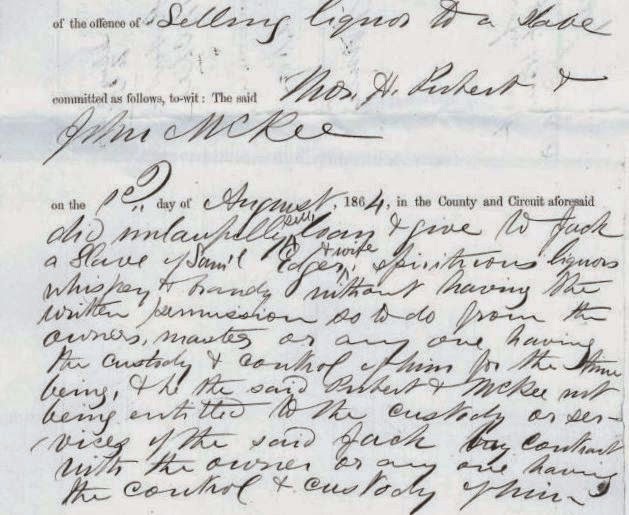 of the offence of Selling liquor to a slave
committed as follows, to-wit: The said Thos. H. Robert &
John McKee
on the 1st day of August, 1864, in the County and Circuit aforesaid
did unlawfully sell, loan & give to Jack
a Slave of Sam'l & wife spirituous liquors
whiskey & brandy without having the
written permission so to do from the
owners, master or any one having
the custody & control of him for the time
being, & he the said Robert & McKee not
being entitled to the custody or ser-
vices of the said Jack by contract
with the owner or any one having
the control & custody of him